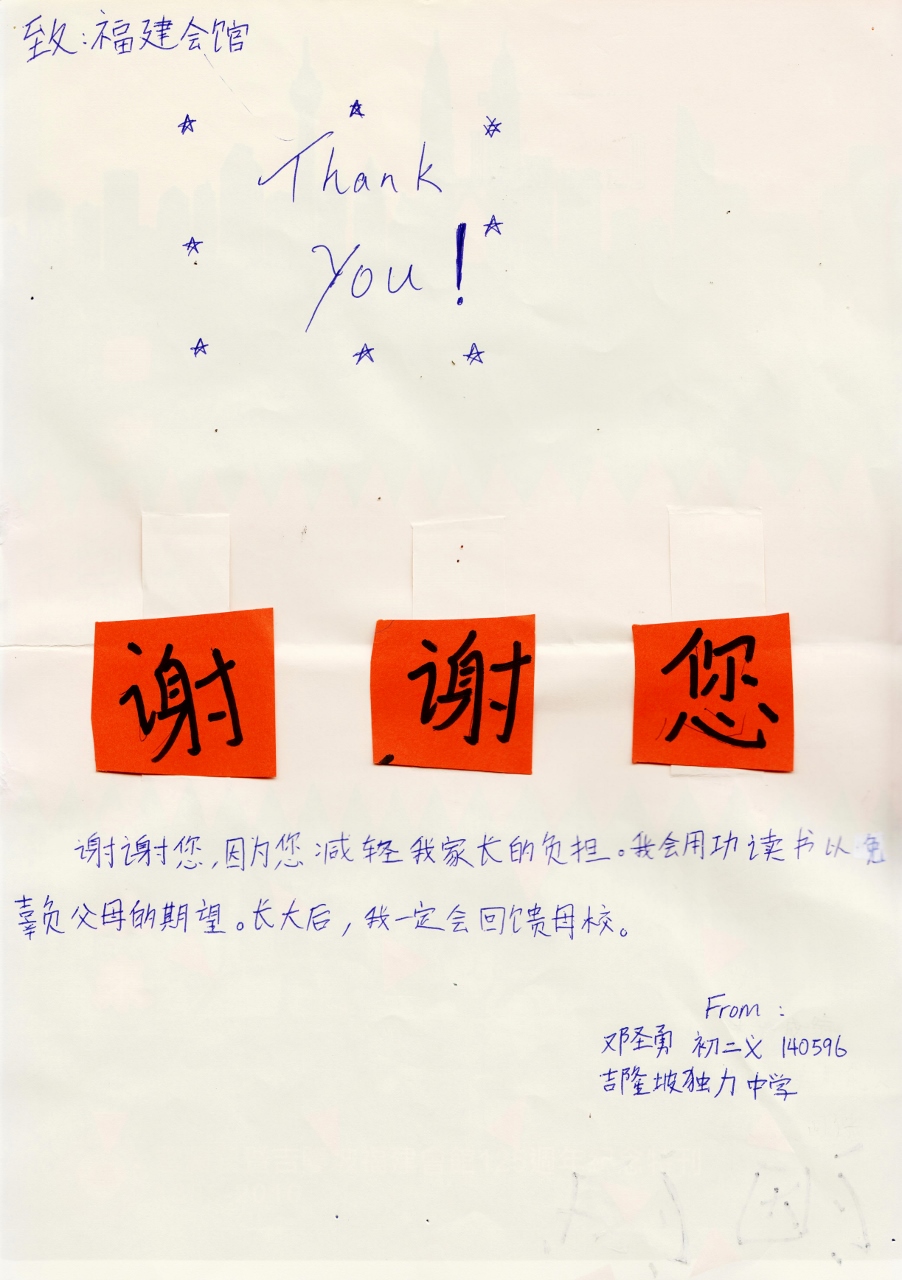 致:福建会馆
Thank
You!
谢 谢 您
谢谢您,因为您减轻我家长的负担。我会用功读书以免
辜负父母的期望。长大后,我一定会回馈母校。
From:
邓圣勇 初二义 140596
吉隆坡独力中学